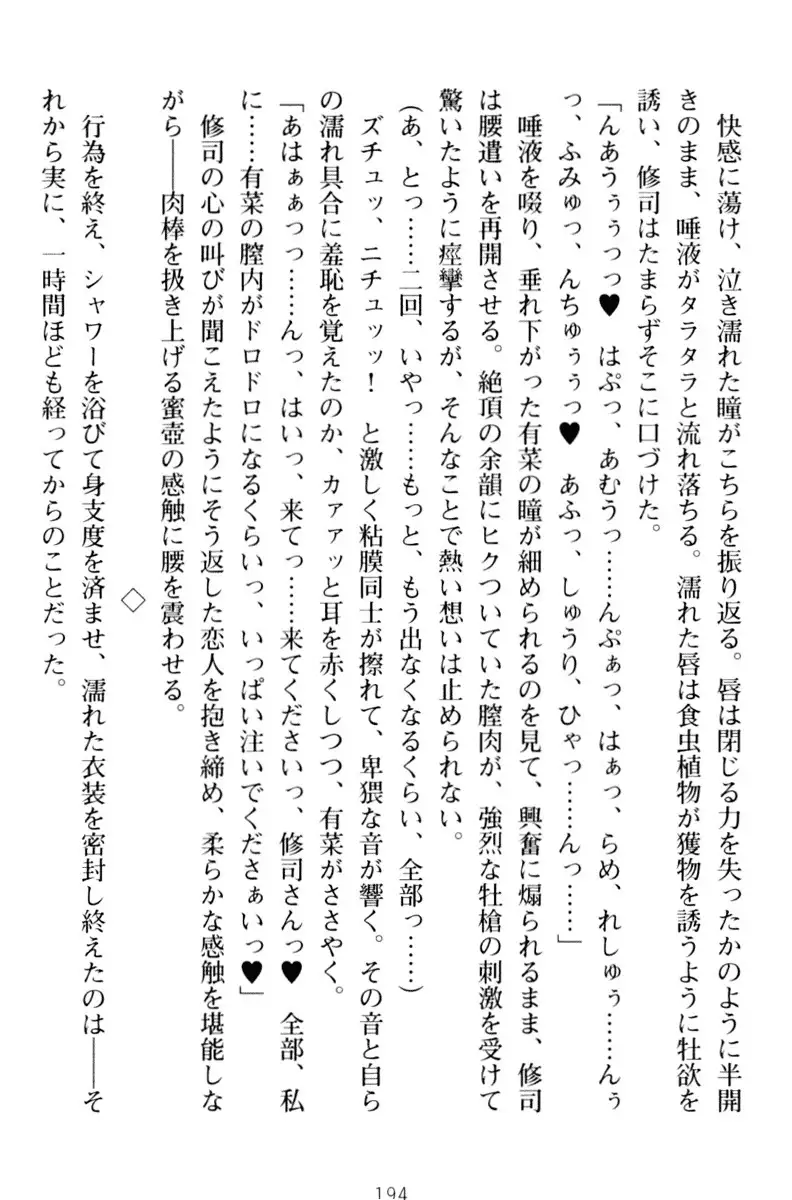 快感に蕩け、泣き濡れた瞳がこちらを振り返る。唇は閉じる力を失ったかのように半開
きのまま、唾液がタラタラと流れ落ちる。濡れた唇は食虫植物が獲物を誘うように牡欲を
誘い、修司はたまらずそこに口づけた。
「んあうぅぅっっ♥　はぷっ、あむうっ……んぷぁっ、はぁっ、らめ、れしゅぅ……んぅ
っ、ふみゅっ、んちゅぅぅっ♥　あふっ、しゅうり、ひゃっ……んっ……」
唾液を啜り、垂れ下がった有菜の瞳が細められるのを見て、興奮に煽られるまま、修司
は腰遣いを再開させる。絶頂の余韻にヒクついていた膣肉が、強烈な牡槍の刺激を受けて
驚いたように痙攣するが、そんなことで熱い想いは止められない。
（あ、とっ……二回、いやっ……もっと、もう出なくなるくらい、全部っ……）
ズチュッ、ニチュッッ！　と激しく粘膜同士が擦れて、卑猥な音が響く。その音と自ら
の濡れ具合に羞恥を覚えたのか、カァァッと耳を赤くしつつ、有菜がささやく。
「あはぁぁっっ……んっ、はいっ、来てっ……来てくださいっ、修司さんっ♥　全部、私
に……有菜の膣内がドロドロになるくらいっ、いっぱい注いでくださぁいっ♥」
修司の心の叫びが聞こえたようにそう返した恋人を抱き締め、柔らかな感触を堪能しな
がら――肉棒を扱き上げる蜜壺の感触に腰を震わせる。
◇
行為を終え、シャワーを浴びて身支度を済ませ、濡れた衣装を密封し終えたのは――そ
れから実に、一時間ほども経ってからのことだった。
194